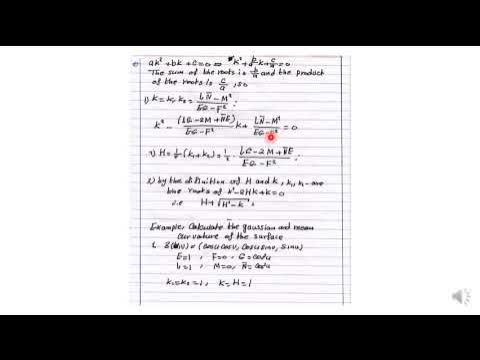 ak² + bk + c = 0 ⇔ k² + b/a k + c/a = 0
The sum of the roots is b/a and the product
of the roots is c/a, so
1) K = k₁ k₂ = (LN − M²)/(EG − F²) ;
k² − (LG − 2M + NE)/(EG − F²) k + (LN − M²)/(EG − F²) = 0
2) H = ½ (k₁ + k₂) = ½ · (LG − 2M + NE)/(EG − F²) ;
3) by the definition of H and K, k₁, k₂ are
the roots of k² − 2Hk + K = 0
i.e H ± √(H² − K)
Example, Calculate the gaussian and mean
curvature of the surface
1. (u,v) = (cosu cosv, cosu sinv, sinu)
E=1 , F=0 , G = cos²u
L=1 , M=0, N = cos²u
k₁=k₂=1, K = H = 1